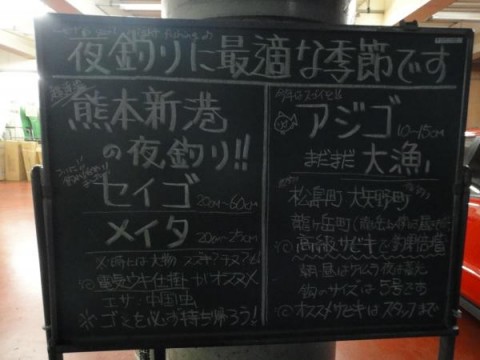 夜釣りに最適な季節です
熊本新港
の夜釣り!!
セイゴ 20cm〜60cm
メイタ 20cm〜25cm
電気ウキ仕掛がオススメ
エサ・中国虫
※ゴミを必ず持ち帰ろう!
アジゴ 10〜15cm
まだまだ大漁!
松島町 大矢野町
龍ヶ岳町
高級サビキで釣果倍増
針のサイズは5号です
オススメサビキはスタッフまで